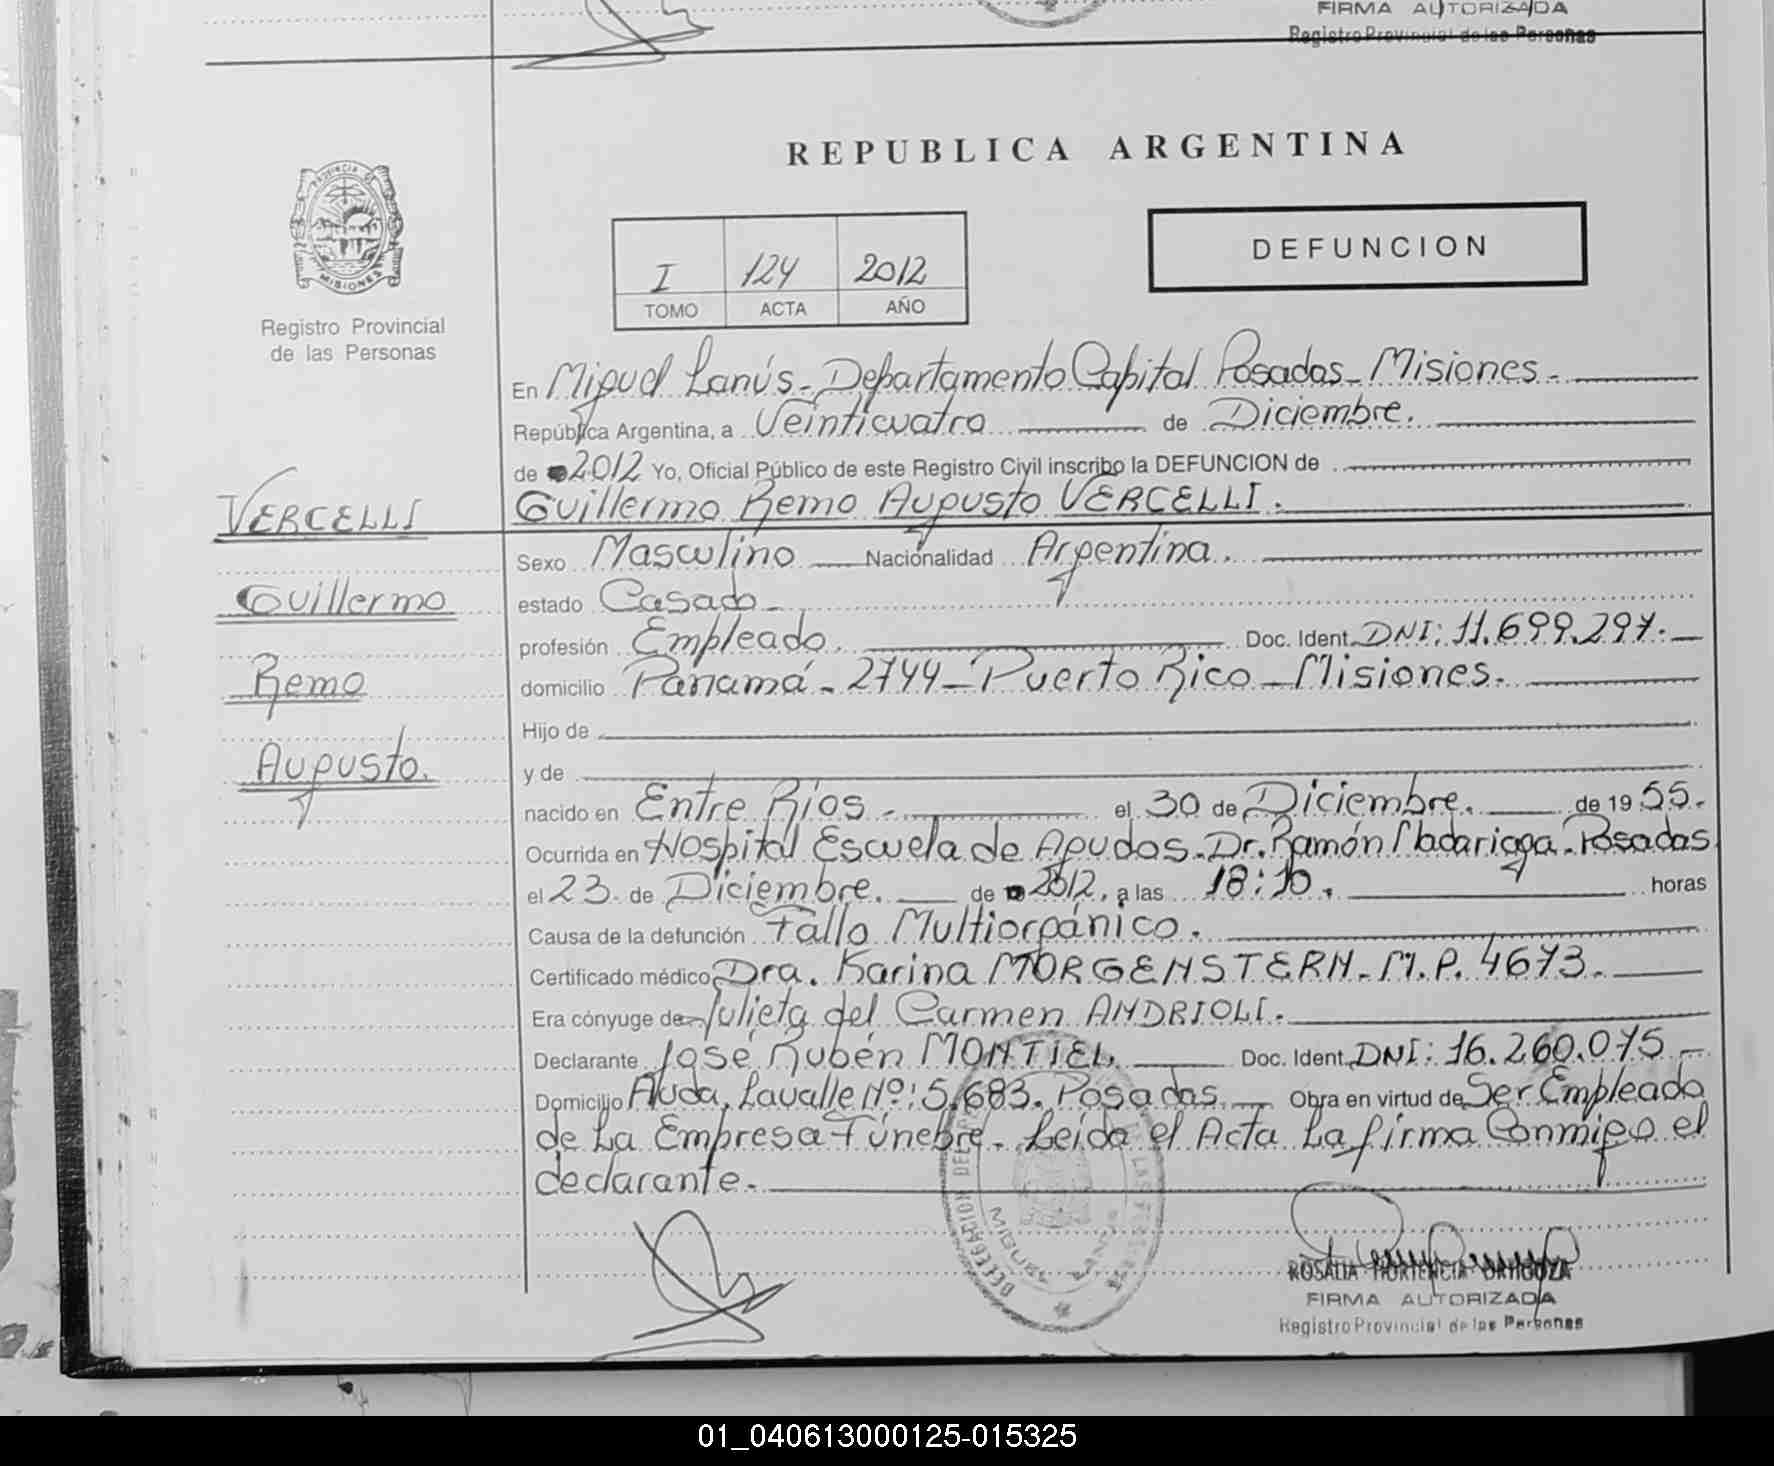 FIRMA AUTORIZADA
Registro Provincial de las Personas
REPUBLICA ARGENTINA
PROVINCIA DE
MISIONES
Registro Provincial
de las Personas
I 124 2012
TOMO ACTA AÑO
DEFUNCION
En Miguel Lanús - Departamento Capital Posadas - Misiones -
República Argentina, a Veinticuatro de Diciembre.
de 2012 Yo, Oficial Público de este Registro Civil inscribo la DEFUNCION de
Guillermo Remo Augusto VERCELLI.
VERCELLI
Guillermo
Remo
Augusto.
Sexo Masculino Nacionalidad Argentina.
estado Casado -
profesión Empleado. Doc. Ident. DNI: 11.699.297.
domicilio Panamá - 2744 - Puerto Rico - Misiones.
Hijo de
y de
nacido en Entre Ríos - el 30 de Diciembre. de 19 55.
Ocurrida en Hospital Escuela de Agudos - Dr. Ramón Madariaga - Posadas
el 23. de Diciembre. de 2012. a las 18:10. horas
Causa de la defunción Fallo Multiorgánico.
Certificado médico Dra. Karina MORGENSTERN - M.P. 4673.
Era cónyuge de Julieta del Carmen ANDRIOLI.
Declarante José Rubén MONTIEL. Doc. Ident. DNI: 16.260.075 -
Domicilio Avda. Lavalle Nº: 5.683. Posadas. Obra en virtud de Ser Empleado
de La Empresa Fúnebre - Leída el Acta La firma Conmigo el
declarante.
ROSALIA HORTENCIA ORTIGOZA
FIRMA AUTORIZADA
Registro Provincial de las Personas
01_040613000125-015325